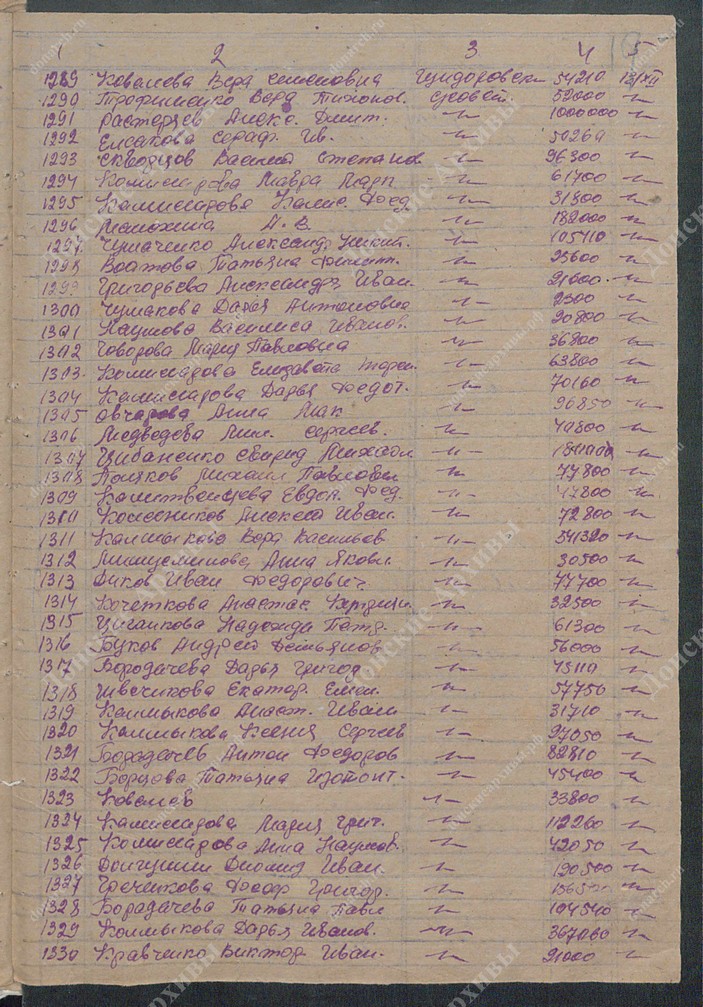 1 2 3 4 5
1289 Ковалева Вера Семеновна 54210
1290 Трофименко Вера Тихонов. сповет. 52000 -"-
1291 Растерзев Алекс. Дмит. -"- 1000000 -"-
1292 Елсакова Сераф. Ив. -"- 50260 -"-
1293 Скворцов Василий Степанов -"- 96300 -"-
1294 Комиссарова Мавра Марк -"- 61700 -"-
1295 Камиссарова Фед. -"- 31800 -"-
1296 А. В. -"- 182000 -"-
1297. Чумаченко Александр Никит. -"- 105110 -"-
1298 Татьяна -"- 25600 -"-
1299 Григорьева Александра Иван. -"- 21600 -"-
1300 Чумакова Дарья Антоновна -"- 2300 -"-
1301 Наумова Василиса Иванов. -"- 20800 -"-
1302 Говорова Мария Павловна -"- 36800 -"-
1303. Комиссарова Елизавета -"- 63800 -"-
1304 Камиссарова Дарья Федот. -"- 70160 -"-
1305 Овчарова Анна Мак -"- 96850 -"-
1306 Медведева Мин. Сергеев. -"- 40800 -"-
1307 Цибаненко Свирид Михайл -"- -"-
1308 Поляков Михаил Павлович -"- 77800 -"-
1309 Калитвенцева Евдок. Фед. -"- 47800 -"-
1310 Колесников Алексей Иван. -"- 72800 -"-
1311 Калмыкова Вера Васильев -"- 541320 -"-
1312 Анна Яковл. -"- 30500 -"-
1313 Диков Иван Федорович -"- 77700 -"-
1314 Кочеткова Анастас -"- 32500 -"-
1315 Цыганкова Надежда Петр. -"- 61300 -"-
1316 Буков Андрей Демьянов -"- 56000 -"-
1317 Бородачева Дарья Григор -"- 45110 -"-
1318 Швечикова Екатер. Емел. -"- 57750 -"-
1319 Калмыкова Анаст. Иван -"- 31710 -"-
1320 Калмыкова Ксения Сергеев -"- 97050 -"-
1321 Борадачев Антон Федоров -"- 82810 -"-
1322 Борцова Татьяна -"- 45400 -"-
1323 Ковалев -"- 33800 -"-
1324 Камиссарова Мария Григ. -"- 112260 -"-
1325 Комиссарова Анна Наумов. -"- 42050 -"-
1326 Диомид Иван. -"- 190500 -"-
1327 Греченкова Григор. -"- -"-
1328 Борадачева Татьяна Павл -"- 104540 -"-
1329 Колмыкова Дарья Иванов. -"- 367060 -"-
1330 Кравченко Виктор Иван. -"- 21000 -"-